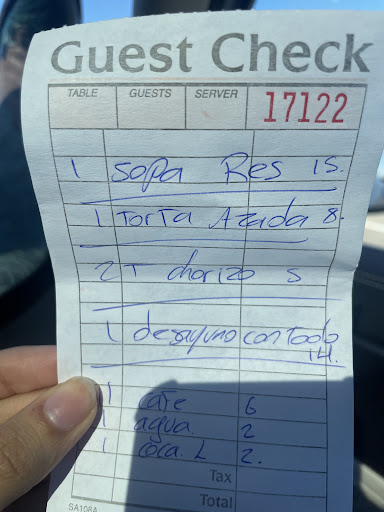 Guest Check
TABLE GUESTS SERVER 17122
1 sopa Res 15.
1 Torta Azada 8.
2 T chorizo 5
1 desayuno con todo
14.
1 cafe 6
1 agua 2
1 coca. L 2.
Tax
Total
SA108A